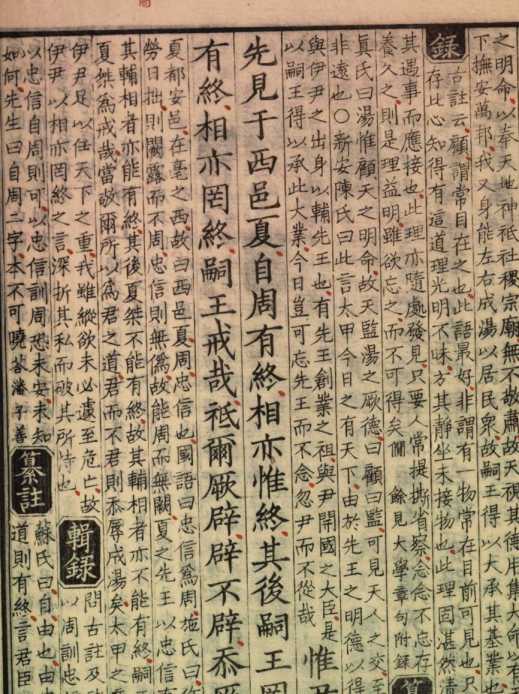 之明命以奉天地神祇社稷宗廟無不敬肅故天視其德用集大命以有
下撫安萬邦我又身能左右成湯以居民衆故嗣王得以大承其基業也
錄
古註云顧謂常目在之也此語最好非謂有一物常在目前可見也只
存此心知得有這道理光明不昧方其靜坐未接物也此理固湛然清
其遇事而應接也此理亦隨處發見只要人常提撕省察念念不忘存
養久之則是理益明雖欲忘之而不可得矣僩 餘見大學章句附錄
纂
真氏曰湯惟顧天之明命故天監湯之厥德曰顧曰監可見天人之交至
非遠也○新安陳氏曰此言太甲今日之有天下由於先王之明德以得
與伊尹之出身以輔先王也有先王創業之祖與尹開國之大臣是
以嗣王得以承此大業今日豈可忘先王而不念忽尹而不從哉
惟
先見于西邑夏自周有終相亦惟終其後嗣王罔
有終相亦罔終嗣王戒哉祗爾厥辟辟不辟忝厥
夏都安邑在亳之西故曰西邑夏周忠信也國語曰忠信爲周施氏曰作
勞日拙則闕露而不周忠信則無僞故能周而無闕夏之先王以忠信有
其輔相者亦能有終其後夏桀不能有終故其輔相者亦不能有終嗣王
夏桀爲戒哉當敬爾所以爲君之道君而不君則忝辱成湯矣太甲之意
伊尹足以任天下之重我雖縱欲未必遽至危亡故
伊尹以相亦罔終之言深折其私而破其所恃也
輯錄
問古註及
以周訓忠
以忠信自周則可以忠信訓周恐未安未知
如何先生曰自周二字本不可曉答潘子善
纂註
蘇氏曰自由也由忠
道則有終言君臣